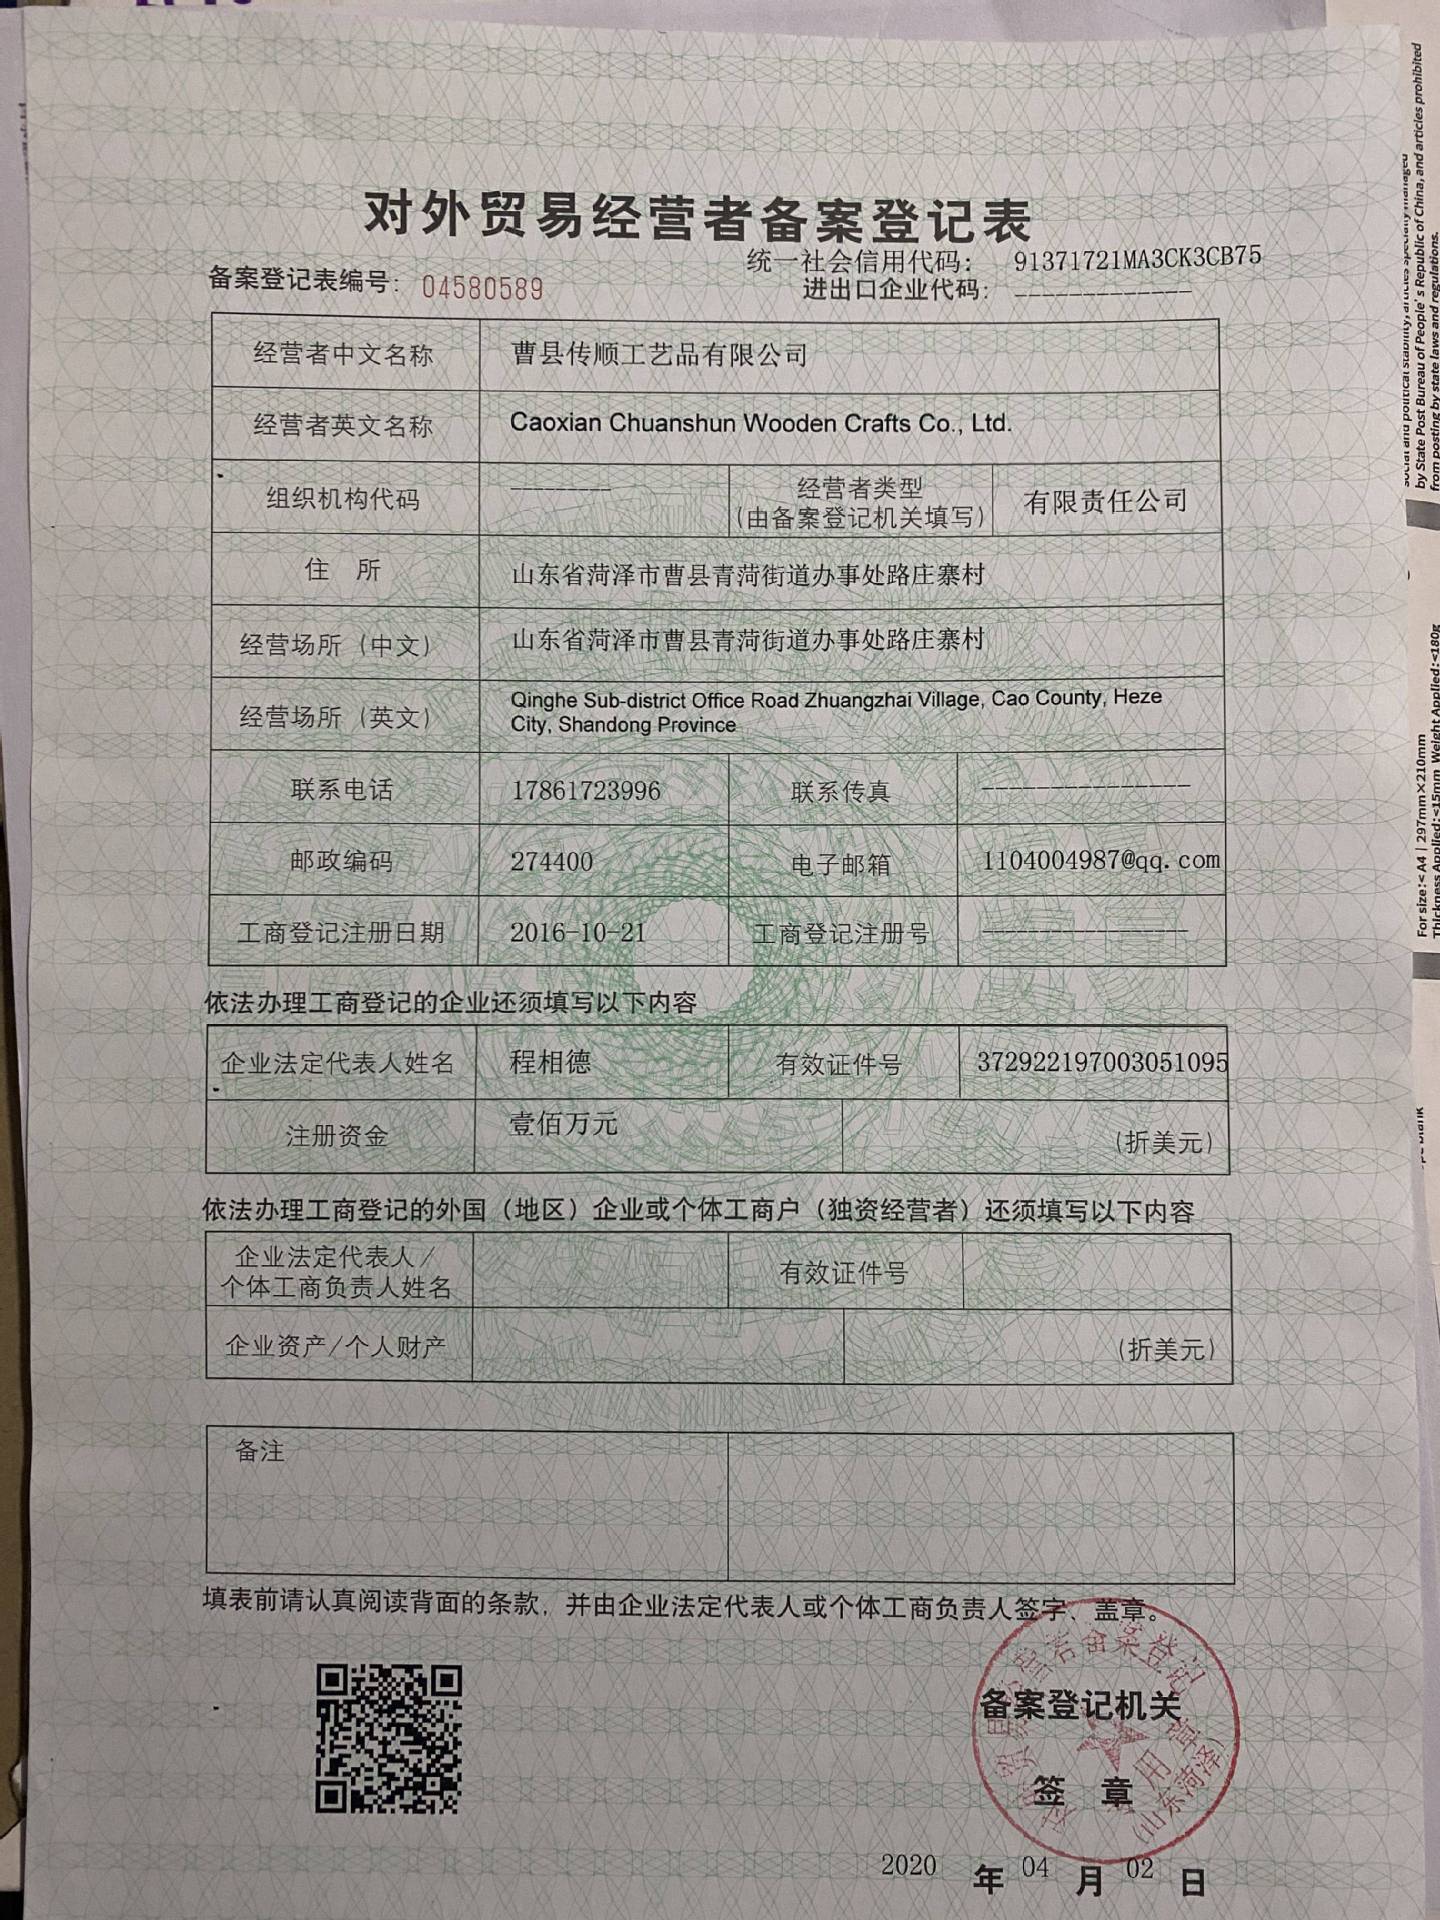 对外贸易经营者备案登记表
统一社会信用代码: 91371721MA3CK3CB75
备案登记表编号: 04580589
进出口企业代码: -------------
经营者中文名称 曹县传顺工艺品有限公司
经营者英文名称 Caoxian Chuanshun Wooden Crafts Co., Ltd.
组织机构代码 --------- 经营者类型 有限责任公司
(由备案登记机关填写)
住 所 山东省菏泽市曹县青菏街道办事处路庄寨村
经营场所(中文) 山东省菏泽市曹县青菏街道办事处路庄寨村
经营场所(英文) Qinghe Sub-district Office Road Zhuangzhai Village, Cao County, Heze
City, Shandong Province
联系电话 17861723996 联系传真 ----------------
邮政编码 274400 电子邮箱 1104004987@qq.com
工商登记注册日期 2016-10-21 工商登记注册号 ----------------
依法办理工商登记的企业还须填写以下内容
企业法定代表人姓名 程相德 有效证件号 372922197003051095
注册资金 壹佰万元 (折美元)
依法办理工商登记的外国(地区)企业或个体工商户(独资经营者)还须填写以下内容
企业法定代表人/
个体工商负责人姓名 有效证件号
企业资产/个人财产 (折美元)
备注
填表前请认真阅读背面的条款,并由企业法定代表人或个体工商负责人签字、盖章。
备案登记机关
签 章
备案登记
用章
(山东菏泽)
2020 年 04 月 02 日
by State Post Bureau of People's Republic of China, and articles prohibited
from posting by state laws and regulations.
For size:< A4 | 297mm×210mm
Thickness Applied:<15mm Weight Applied:<180g